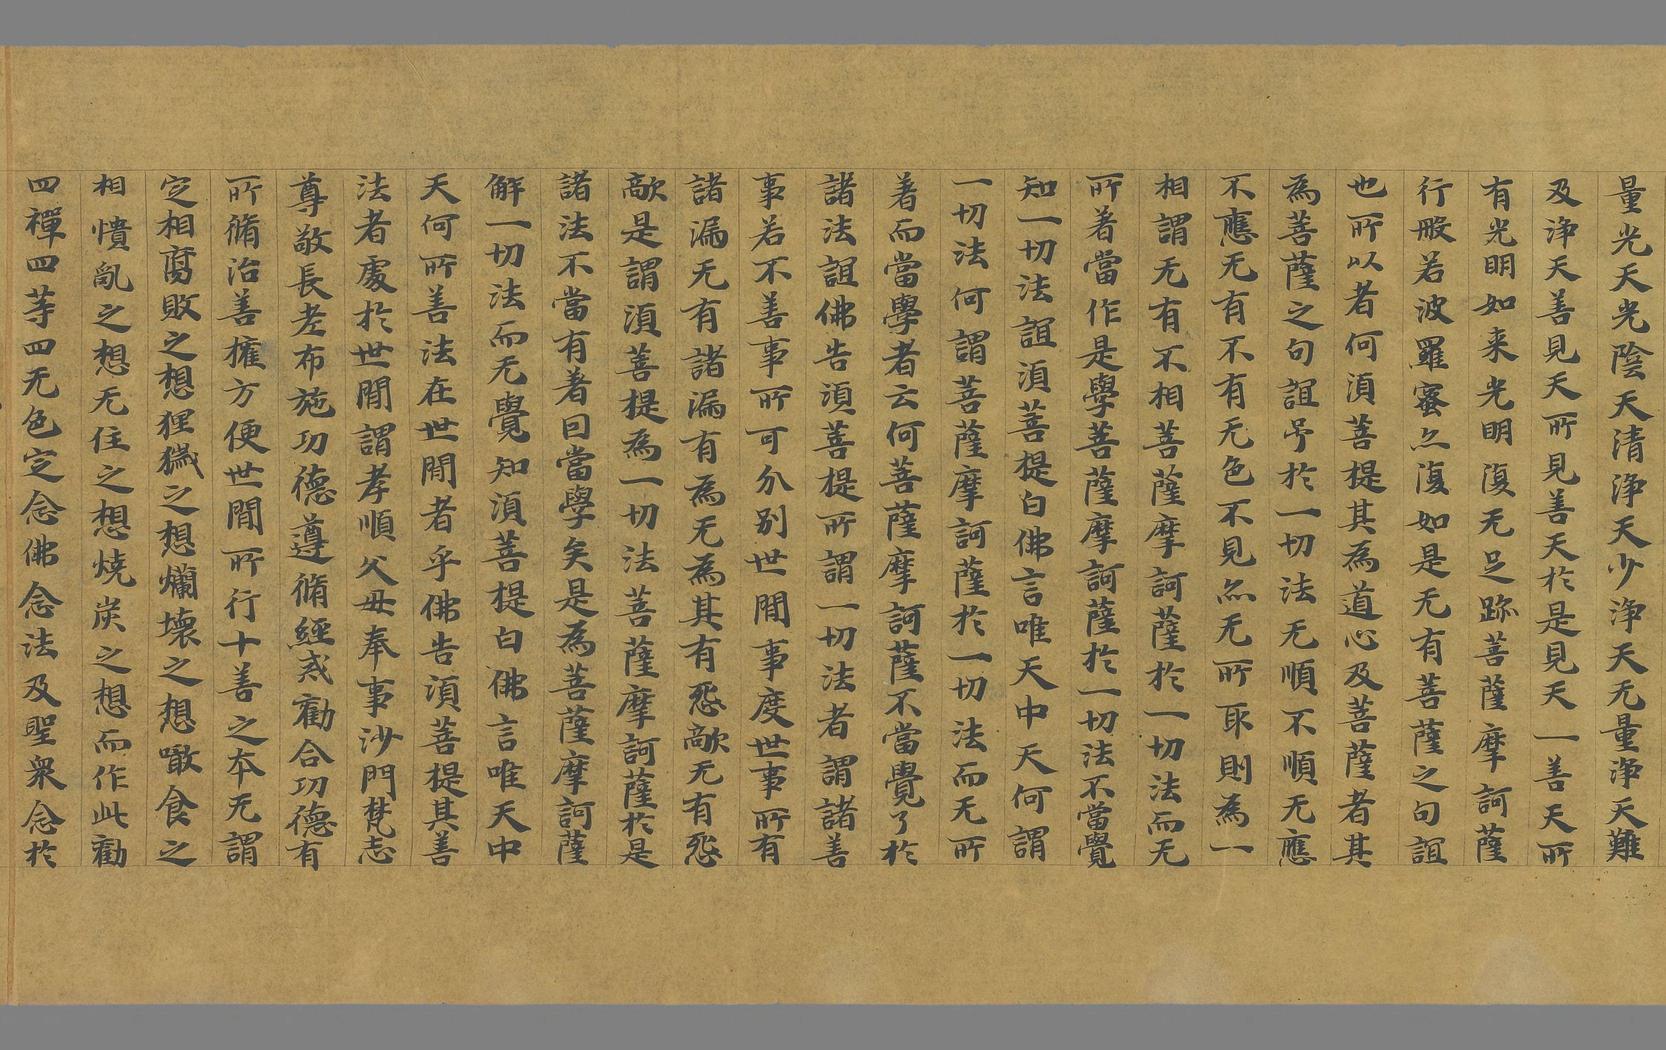 量光天光陰天清淨天少淨天无量淨天難
及淨天善見天所見善天於是見天一善天所
有光明如来光明復无足跡菩薩摩訶薩
行般若波羅蜜亦復如是无有菩薩之句誼
也所以者何須菩提其為道心及菩薩者其
為菩薩之句誼乎於一切法无順不順无應
不應无有不有无色不見亦无所取則為一
相謂无有不相菩薩摩訶薩於一切法而无
所著當作是學菩薩摩訶薩於一切法不當覺
知一切法誼須菩提白佛言唯天中天何謂
一切法何謂菩薩摩訶薩於一切法而无所
著而當學者云何菩薩摩訶薩不當覺了於
諸法誼佛告須菩提所謂一切法者謂諸善
事若不善事所可分別世間事度世事所有
諸漏无有諸漏有為无為其有怨敵无有怨
敵是謂須菩提為一切法菩薩摩訶薩於是
諸法不當有著曰當學矣是為菩薩摩訶薩
解一切法而无覺知須菩提白佛言唯天中
天何所善法在世間者乎佛告須菩提其善
法者處於世間謂孝順父母奉事沙門梵志
尊敬長老布施功德遵脩經戒勸合功德有
所脩治善權方便世間所行十善之本无謂
定相腐敗之想狸𤡬之想爛壞之想噉食之
相憒亂之想无住之想燒炭之想而作此勸
四禪四等四无色定念佛念法及聖衆念於